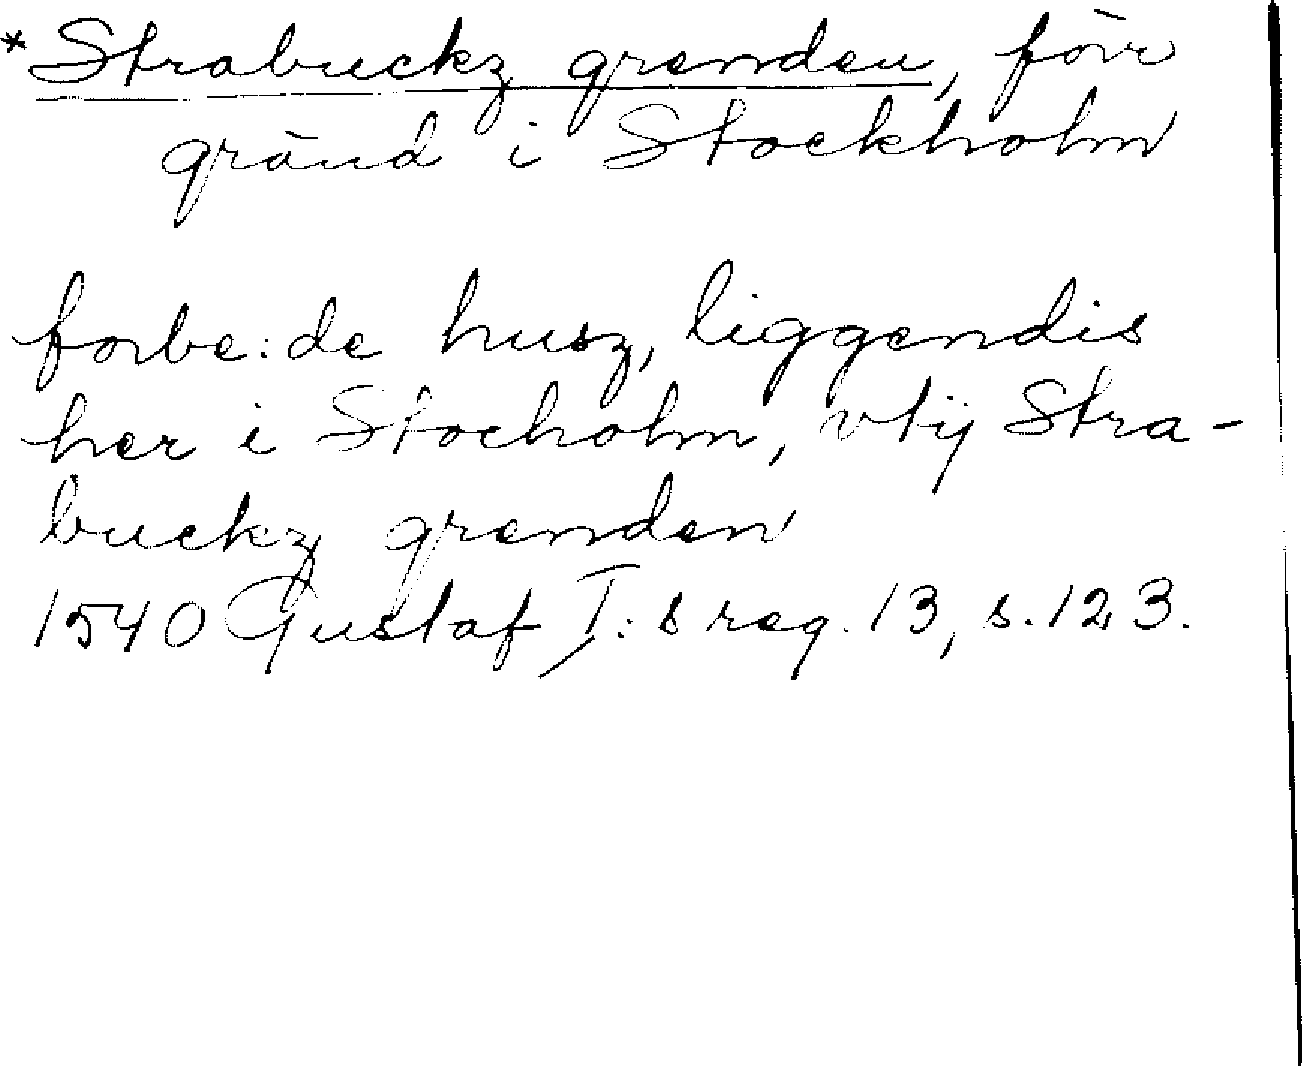 *Strabuckz grenden, förr
gränd i Stockholm
forbe:de husz, liggendis
her i Stocholm, vtij Stra-
buckz grenden
1540 Gustaf I:s reg. 13, s. 123.